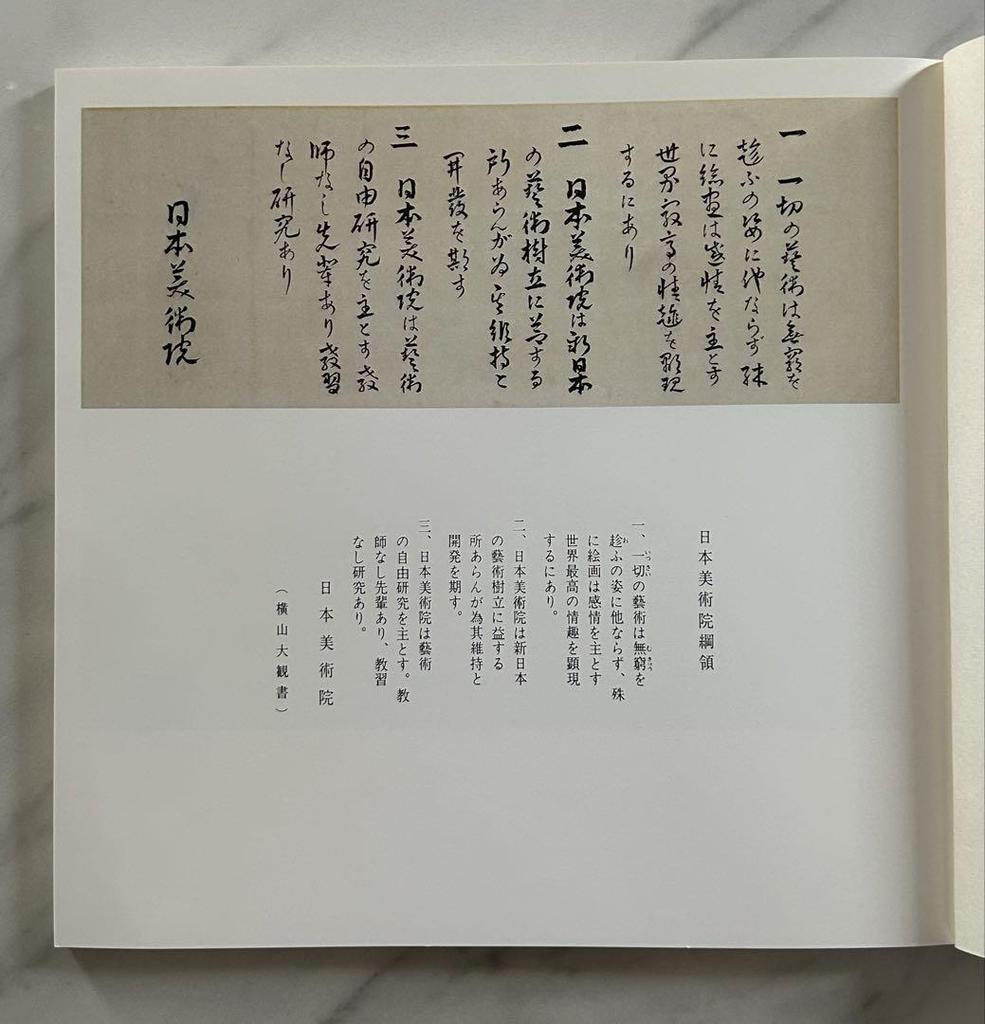 一 一切の藝術は無窮を
趁ふの姿に他ならず殊
に繪畫は感情を主とす
世界最高の情趣を顯現
するにあり
二 日本美術院は新日本
の藝術樹立に益する
所あらんが為其維持と
開發を期す
三 日本美術院は藝術
の自由研究を主とす教
師なし先輩あり教習
なし研究あり
日本美術院
日本美術院綱領
一、一切の藝術は無窮を
趁ふの姿に他ならず、殊
に絵画は感情を主とす
世界最高の情趣を顕現
するにあり。
二、日本美術院は新日本
の藝術樹立に益する
所あらんが為其維持と
開発を期す。
三、日本美術院は藝術
の自由研究を主とす。教
師なし先輩あり、教習
なし研究あり。
日本美術院
(横山大観書)